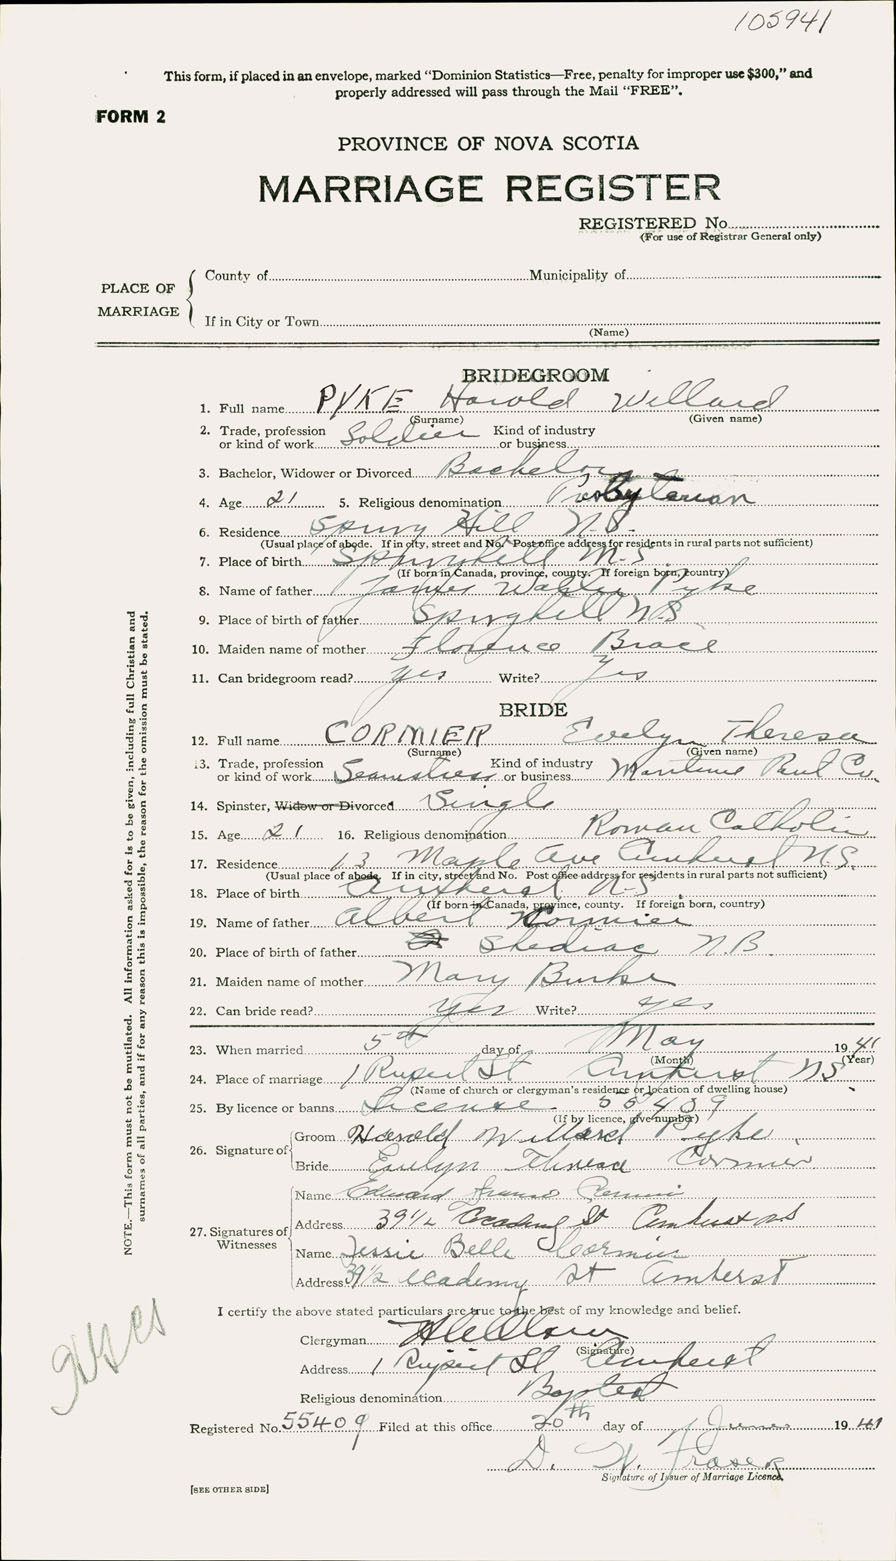 105941
This form, if placed in an envelope, marked "Dominion Statistics—Free, penalty for improper use $300," and
properly addressed will pass through the Mail "FREE".
FORM 2
PROVINCE OF NOVA SCOTIA
MARRIAGE REGISTER
REGISTERED No.
(For use of Registrar General only)
PLACE OF MARRIAGE
County of Municipality of
If in City or Town
(Name)
BRIDEGROOM
1. Full name PYKE Harold Willard
(Surname) (Given name)
2. Trade, profession or kind of work Soldier Kind of industry or business
3. Bachelor, Widower or Divorced Bachelor
4. Age 21 5. Religious denomination Presbyterian
6. Residence Spring Hill N.S.
(Usual place of abode. If in city, street and No. Post office address for residents in rural parts not sufficient)
7. Place of birth Springhill N.S
(If born in Canada, province, county. If foreign born, country)
8. Name of father James Walter Pyke
9. Place of birth of father Springhill N.S
10. Maiden name of mother Florence Brace
11. Can bridegroom read? yes Write? yes
BRIDE
12. Full name CORMIER Evelyn Theresa
(Surname) (Given name)
13. Trade, profession or kind of work Seamstress Kind of industry or business Maritime Co.
14. Spinster, Widow or Divorced Single
15. Age 21 16. Religious denomination Roman Catholic
17. Residence 13 Maple Ave Amherst N.S.
(Usual place of abode. If in city, street and No. Post office address for residents in rural parts not sufficient)
18. Place of birth Amherst N.S
(If born in Canada, province, county. If foreign born, country)
19. Name of father Albert Cormier
20. Place of birth of father Shediac N.B.
21. Maiden name of mother Mary Burke
22. Can bride read? yes Write? yes
23. When married 5th day of May 1941
(Month) (Year)
24. Place of marriage 1 Rupert St Amherst NS
(Name of church or clergyman's residence or location of dwelling house)
25. By licence or banns License 55409
(If by licence, give number)
26. Signature of
Groom Harold Willard Pyke
Bride Evelyn Theresa Cormier
27. Signatures of Witnesses
Name Edward
Address 39½ Academy St Amherst NS
Name Jessie Belle Cormier
Address 39½ Academy St Amherst
I certify the above stated particulars are true to the best of my knowledge and belief.
Clergyman
(Signature)
Address 1 Rupert St Amherst
Religious denomination Baptist
Registered No. 55409 Filed at this office 20th day of June 1941
D. W. Fraser
Signature of Issuer of Marriage Licence.
[SEE OTHER SIDE]
NOTE.—This form must not be mutilated. All information asked for is to be given, including full Christian and
surnames of all parties, and if for any reason this is impossible, the reason for the omission must be stated.